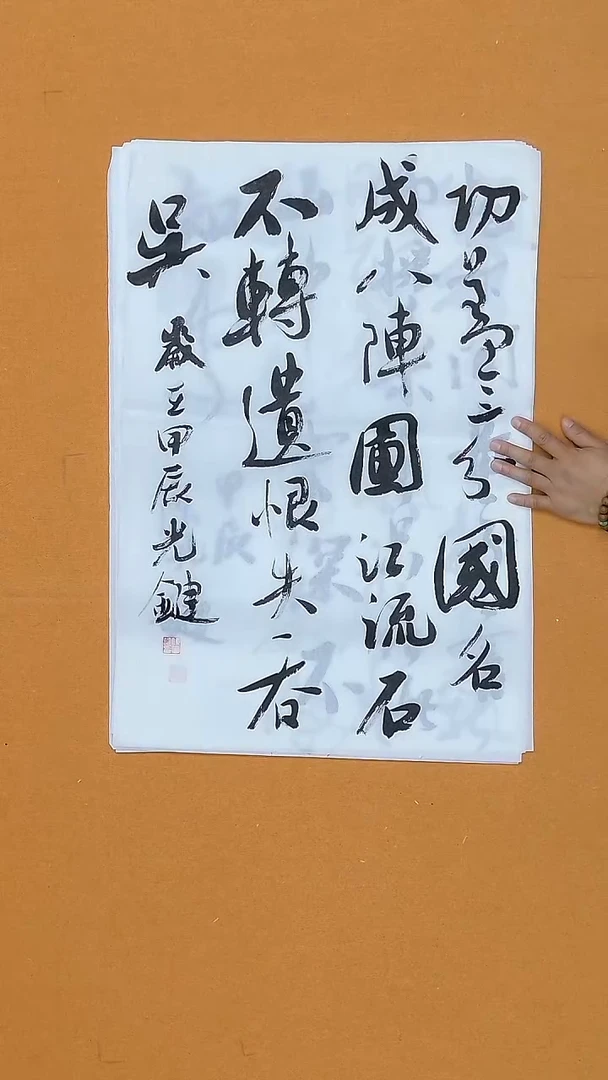 功蓋三分國名
成八陣圖江流石
不轉遺恨失吞
吳
歲在甲辰光鍵